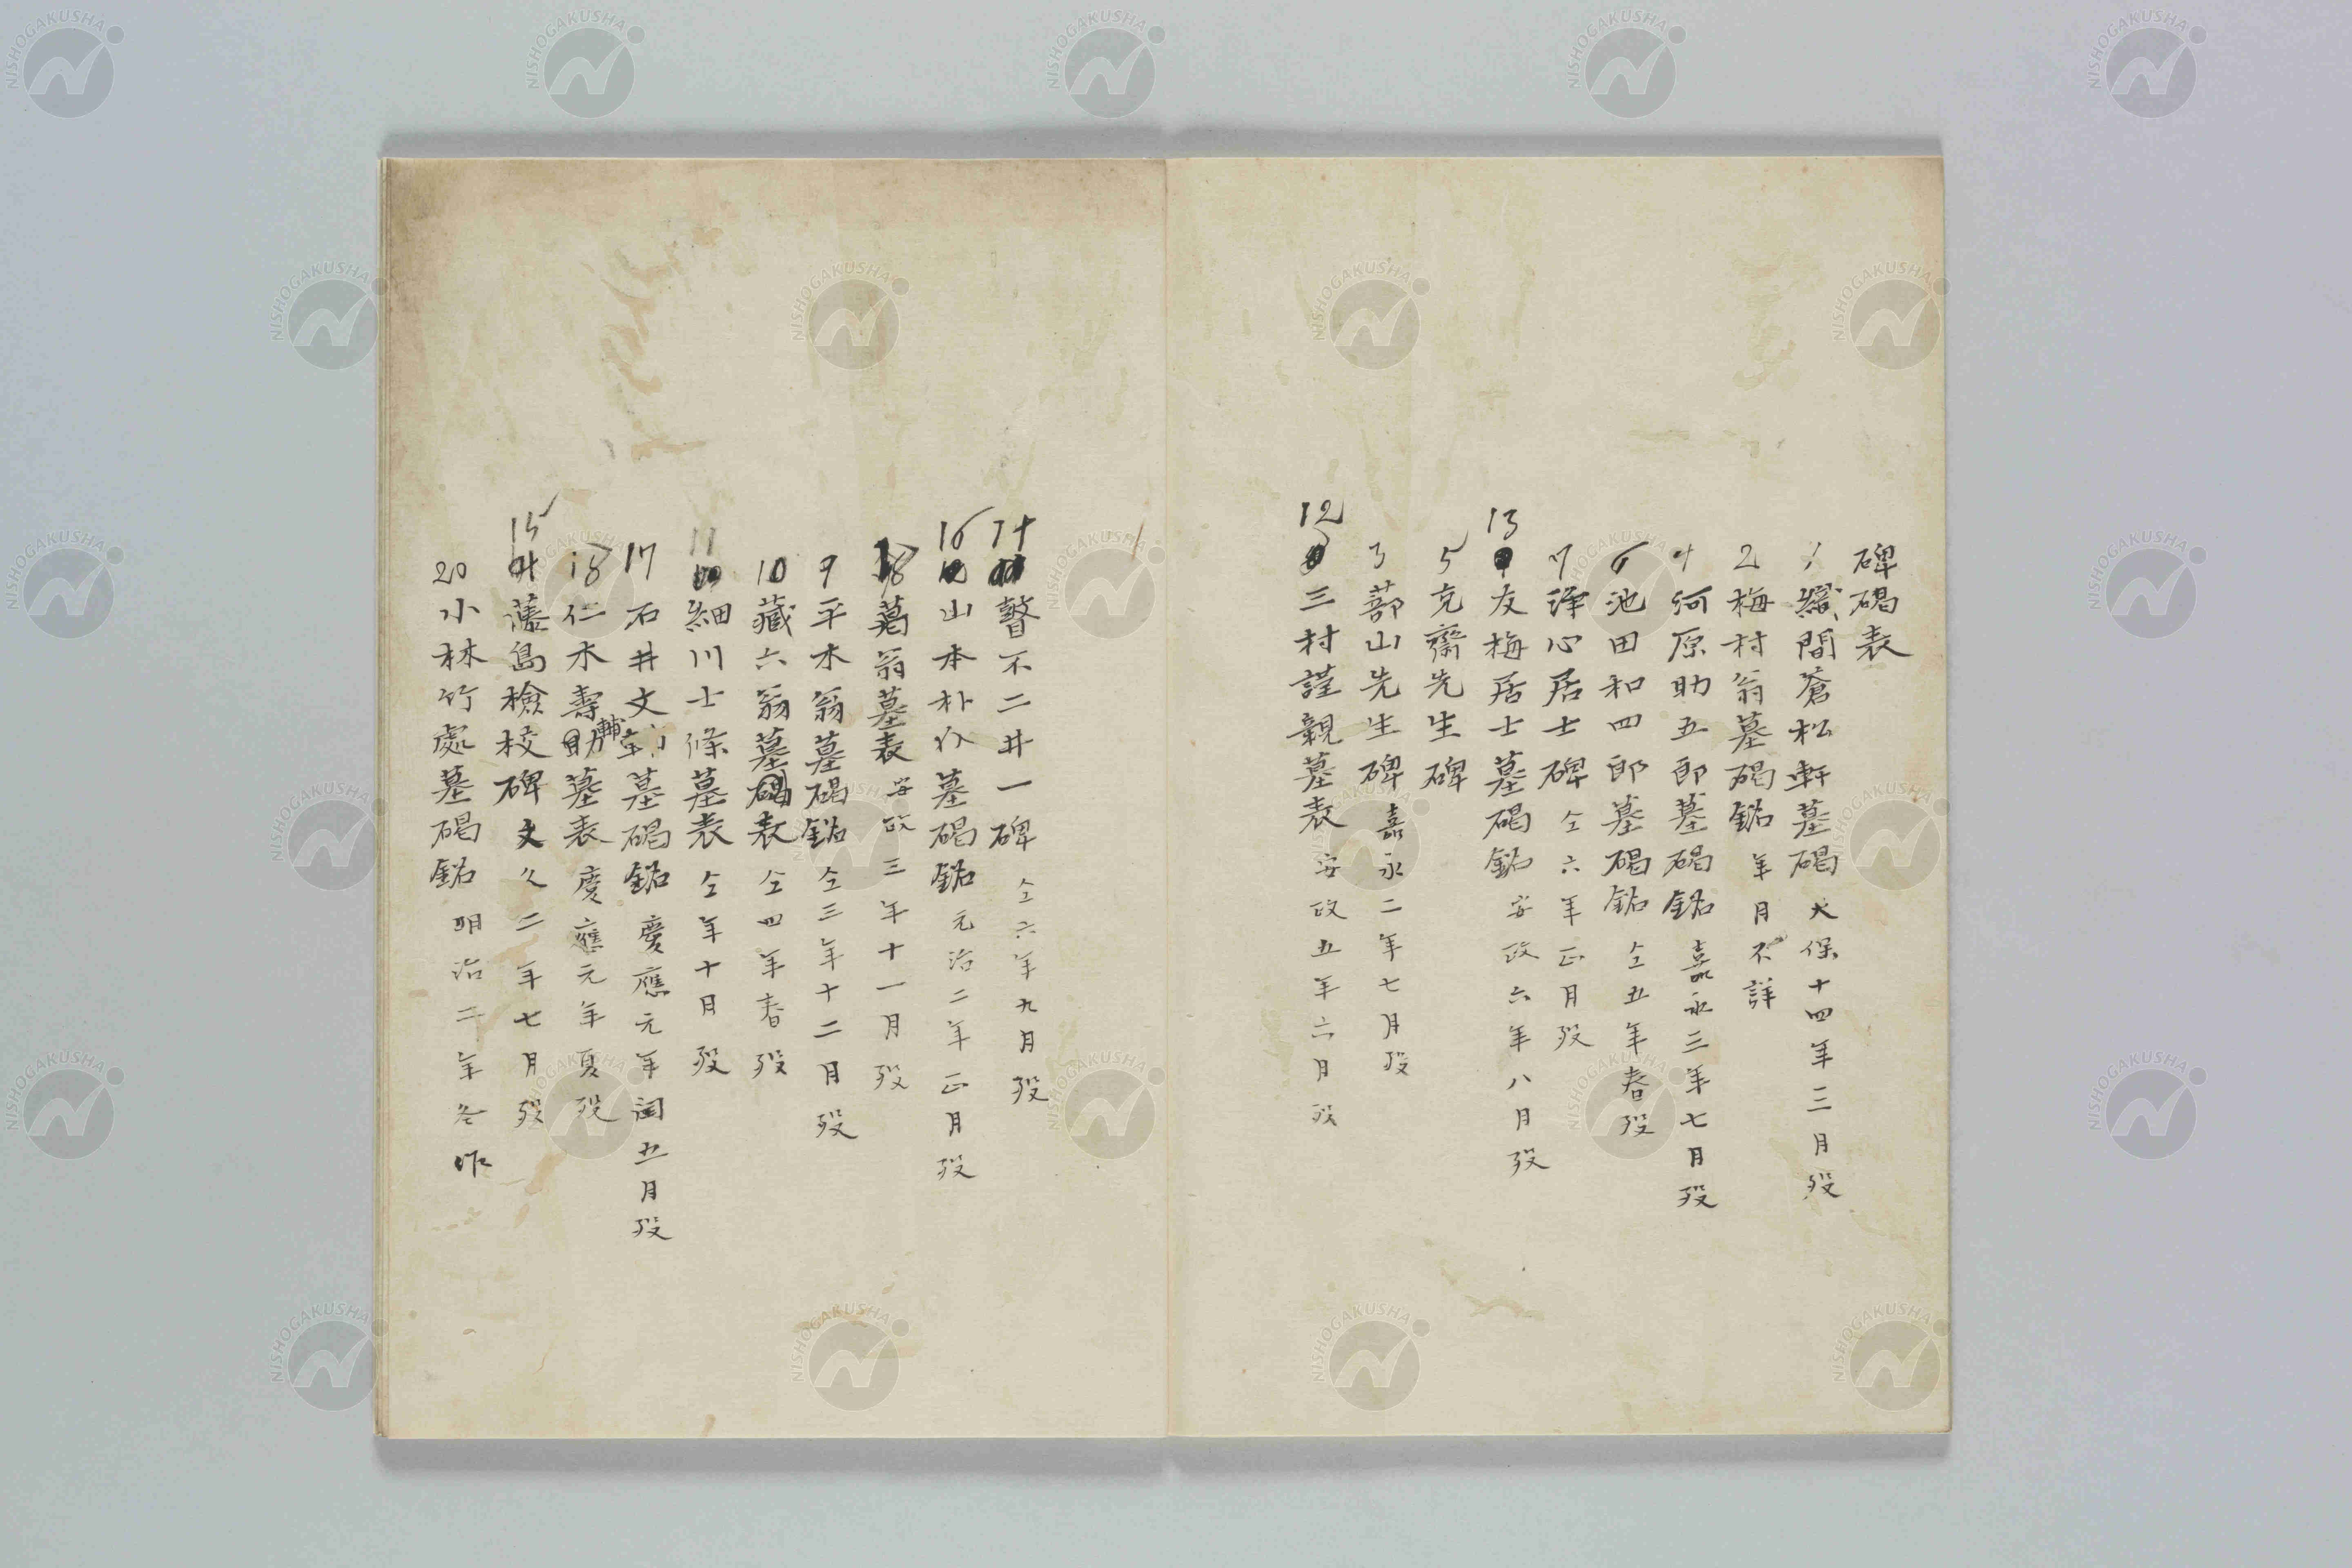 碑碣表
1 纎間蒼松軒墓碣 天保十四年三月歿
2 梅村翁墓碣銘 年月不詳
4 河原助五郎墓碣銘 嘉永三年七月歿
6 池田和四郎墓碣銘 仝五年春歿
7 淨心居士碑 仝六年正月歿
13 友梅居士墓碣銘 安政六年八月歿
5 克齋先生碑
3 蔀山先生碑 嘉永二年七月歿
12 三村謹親墓表 安政五年六月歿
14 瞽不二井一碑 仝六年九月歿
16 山本朴仈墓碣銘 元治二年正月歿
8 葛翁墓表 安政三年十一月歿
9 平木翁墓碣銘 仝三年十二月歿
10 藏六翁墓表 仝四年春歿
11 細川士條墓表 仝年十月歿
17 石井文墓碣銘 慶應元年閏五月歿
18 仁木壽輔墓表 慶應元年夏歿
15 藤島檢校碑 文久二年七月歿
20 小林竹處墓碣銘 明治二年冬作
NISHOGAKUSHA